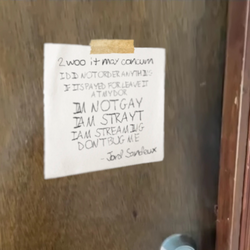 2woo it may concurn
I DID NOT ORDER ANYTHING
IF ITS PAYED FOR LEAVE IT
AT MY DOR
IM NOT GAY
IAM STRAYT
IAM STREAMING
DONT BUG ME